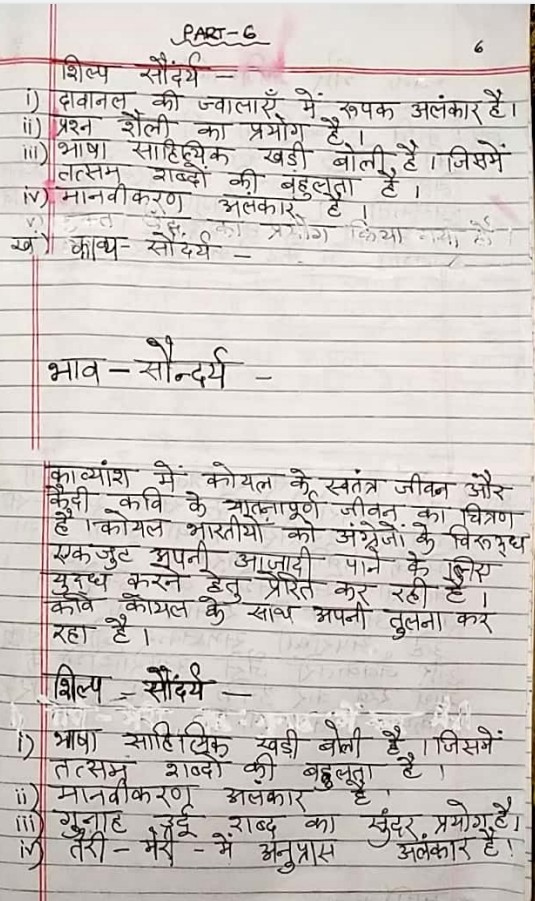 PART-6
6
शिल्प सौंदर्य –
i) दावानल की ज्वालाएँ में रूपक अलंकार है।
ii) प्रश्न शैली का प्रयोग है।
iii) भाषा साहित्यिक खड़ी बोली है। जिसमें
तत्सम शब्दों की बहुलता है।
iv) मानवीकरण अलंकार है।
v) का प्रयोग किया गया है।
ख) काव्य-सौंदर्य –
भाव – सौन्दर्य –
काव्यांश में कोयल के स्वतंत्र जीवन और
कैदी कवि के यातनापूर्ण जीवन का चित्रण
है। कोयल भारतीयों को अंग्रेजों के विरूद्ध
एकजुट अपनी आजादी पाने के लिए
युद्ध करने हेतु प्रेरित कर रही है।
कवि कोयल के साथ अपनी तुलना कर
रहा है।
शिल्प – सौंदर्य –
i) भाषा साहित्यिक खड़ी बोली है। जिसमें
तत्सम शब्दों की बहुलता है।
ii) मानवीकरण अलंकार है।
iii) गुनाह उर्दू शब्द का सुंदर प्रयोग है।
iv) तेरी – मेरी – में अनुप्रास अलंकार है।